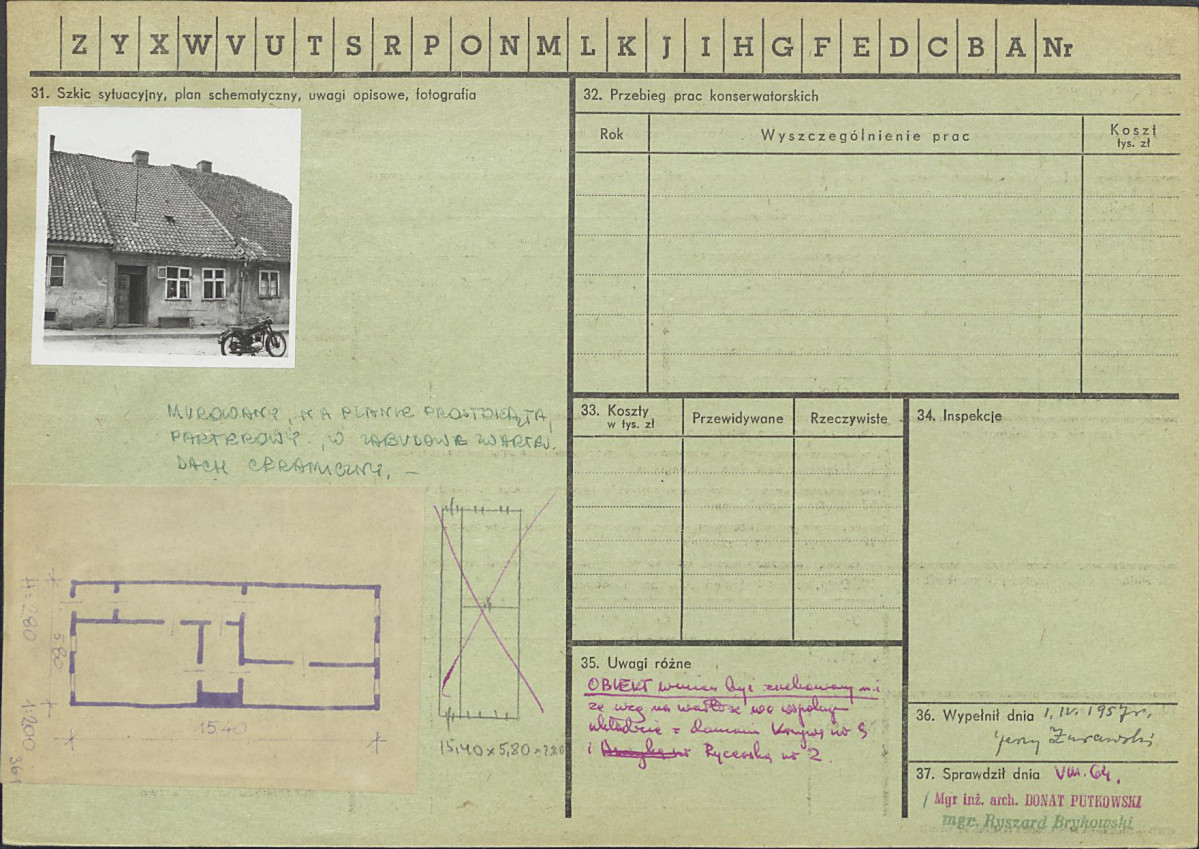 Z Y X W V U T S R P O N M L K J I H G F E D C B A Nr
31. Szkic sytuacyjny, plan schematyczny, uwagi opisowe, fotografia
MUROWANY, NA PLANIE PROSTOKĄTA,
PARTEROWY, W ZABUDOWIE ZWARTEJ.
DACH CERAMICZNY. —
H=280
5.80
1200
361
15.40
15,40 x 5,80 x 2,80
32. Przebieg prac konserwatorskich
Rok
Wyszczególnienie prac
Koszt
tys. zł
33. Koszty
w tys. zł
Przewidywane
Rzeczywiste
34. Inspekcje
35. Uwagi różne
OBIEKT winien być zachowany
ze wzg na wartość we wspólnym
układzie z domami nr 9
i Rycerska nr 2.
36. Wypełnił dnia 1. IV. 1957 r.
Jerzy Żurawski
37. Sprawdził dnia VIII. 64.
/ Mgr inż. arch. DONAT PUTKOWSKI
mgr. Ryszard Brykowski